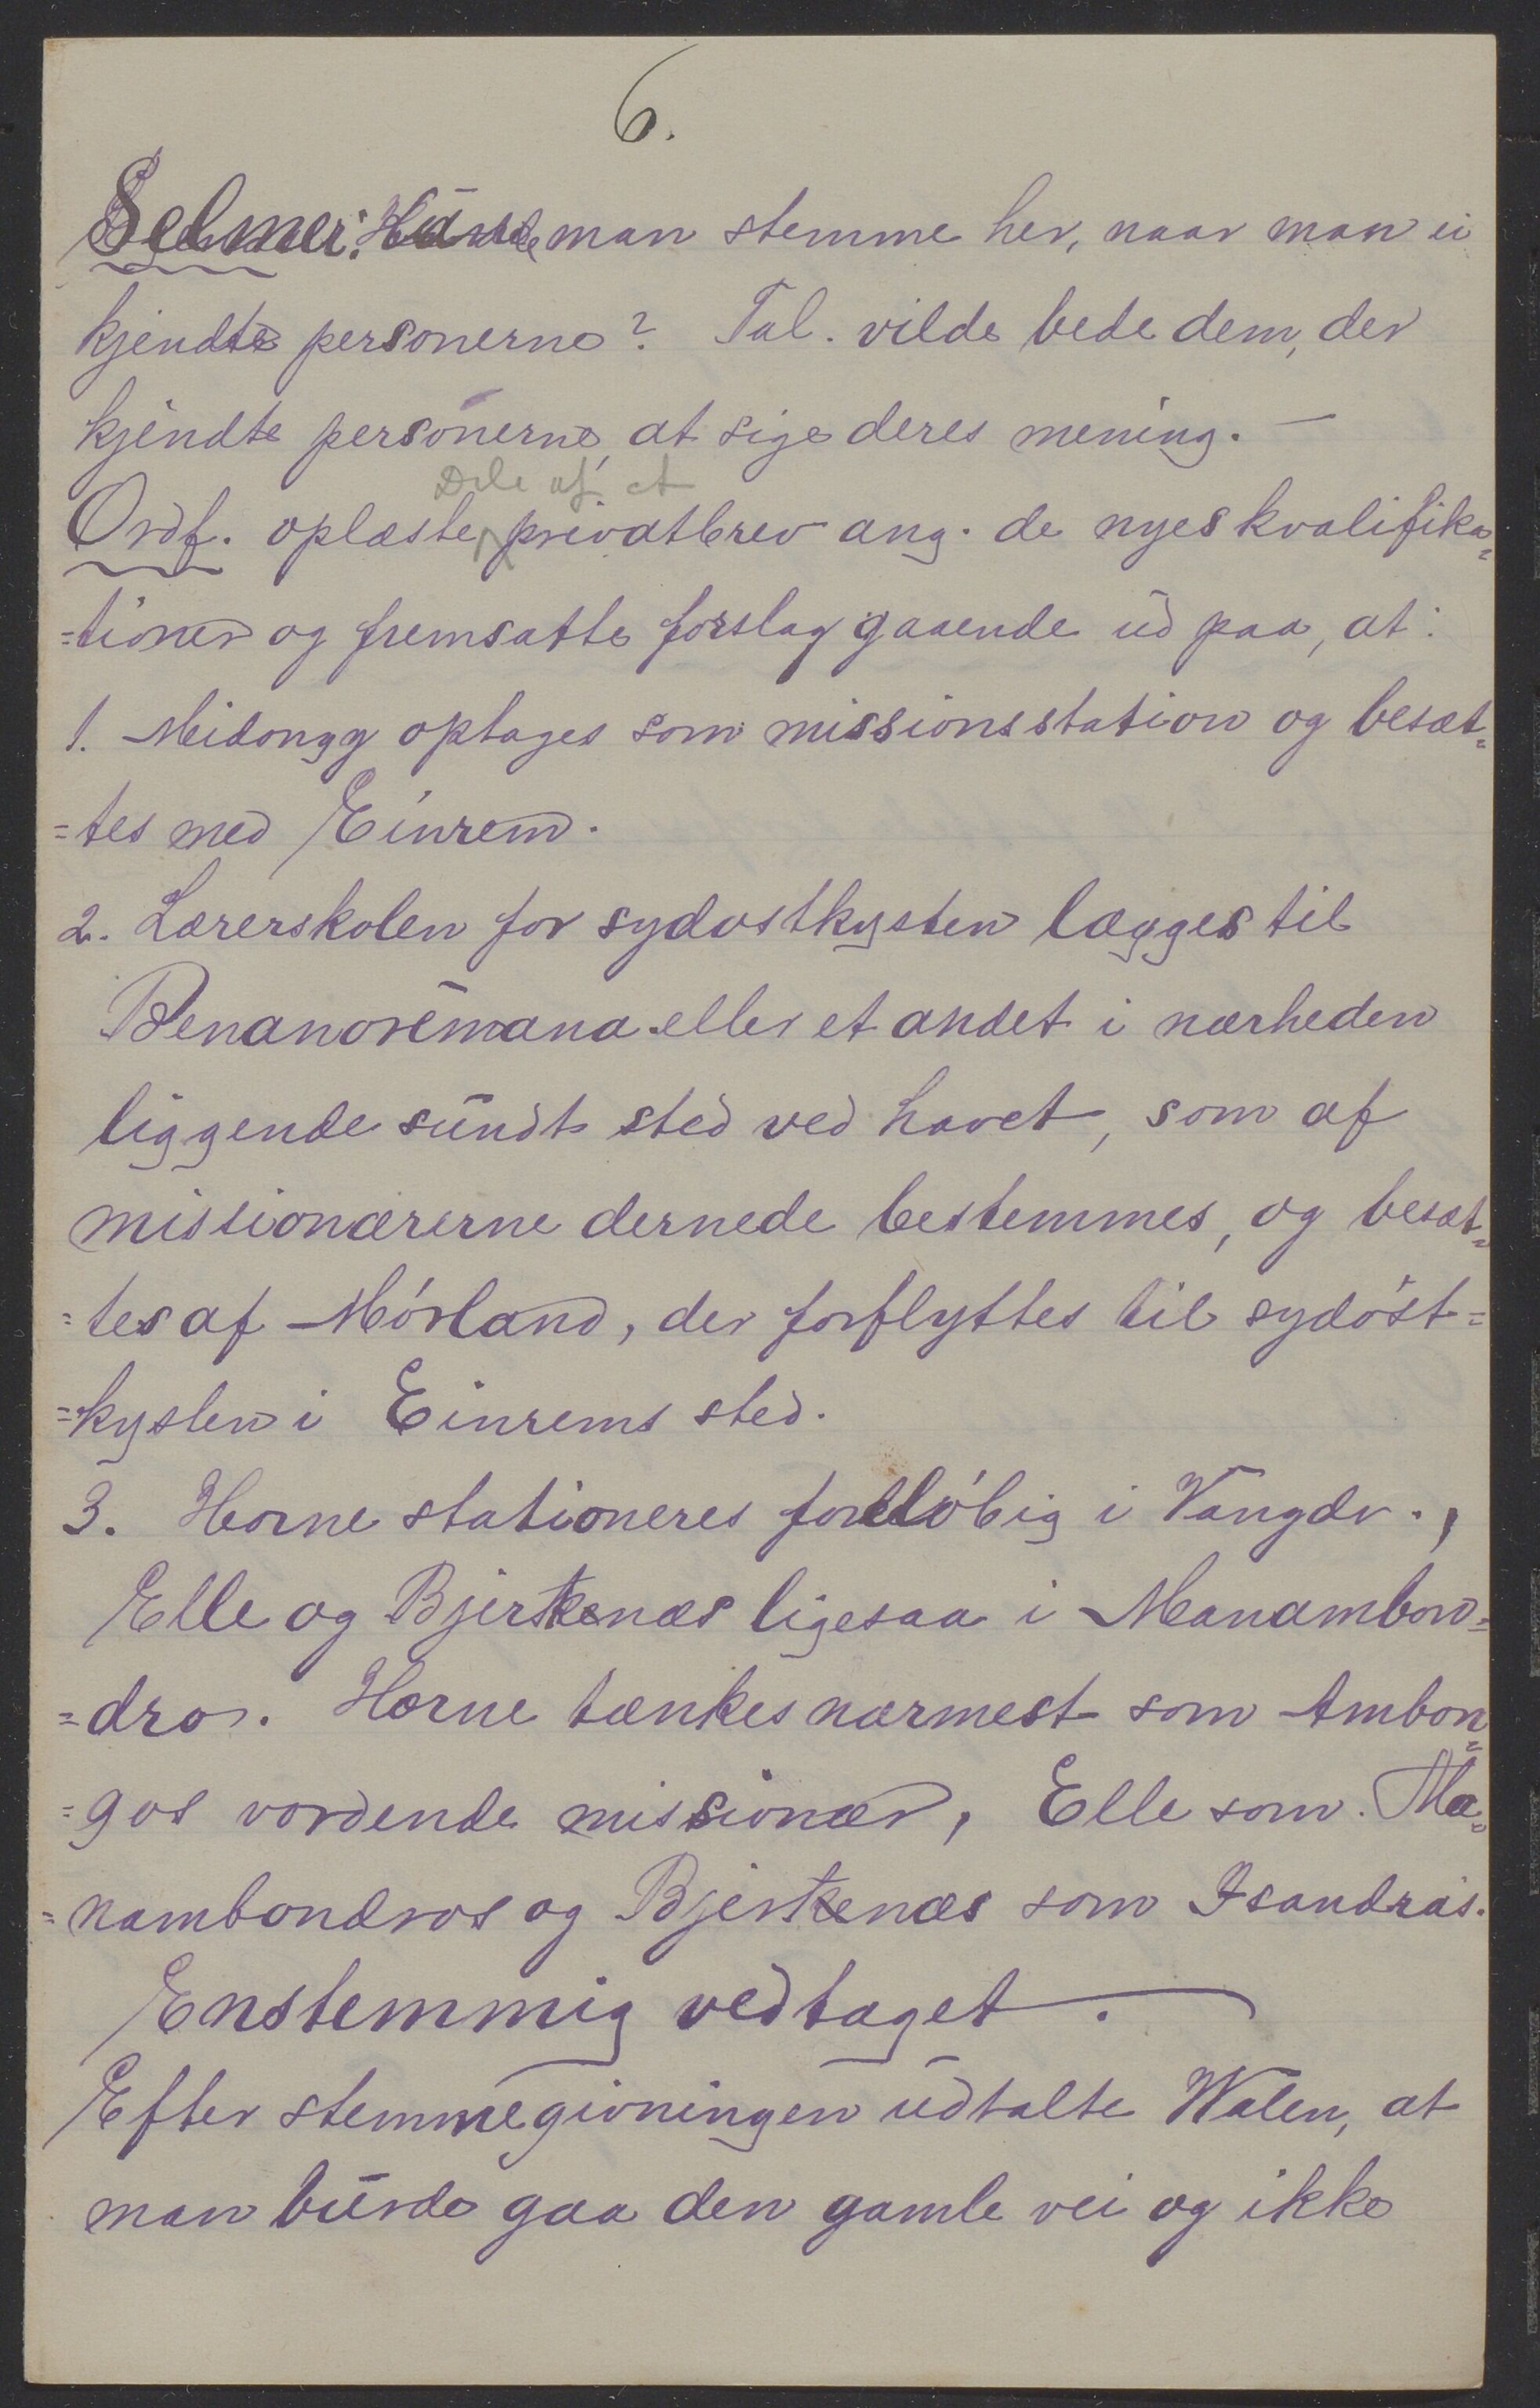 6.
Selmer: man stemme her, naar man ei
kjendte personerne? Tal. vilde bede dem, der
kjendte personerne, at sige deres mening. —
Dele af et
Ordf. oplæste privatbrev ang. de nyes kvalifika=
=tioner og fremsatte forslag gaaende ud paa, at:
1. Midongy optages som missionsstation og besæt=
=tes med Einrem.
2. Lærerskolen for sydostkysten lægges til
Benanorémana eller et andet i nærheden
liggende sundt sted ved havet, som af
missionærerne dernede bestemmes, og besæt=
=tes af Mórland, der forflyttes til sydóst=
=kysten i Einrems sted.
3. Horne stationeres forelóbig i Vangdr.,
Elle og Bjerkenæs ligesaa i Manambon=
=dro. Horne tænkes nærmest som Ambon=
=gos vordende missionær, Elle som Ma=
=nambondros og Bjerkenæs som Isandras.
Enstemmig vedtaget.
Efter stemmegivningen udtalte Walen, at
man burde gaa den gamle vei og ikke